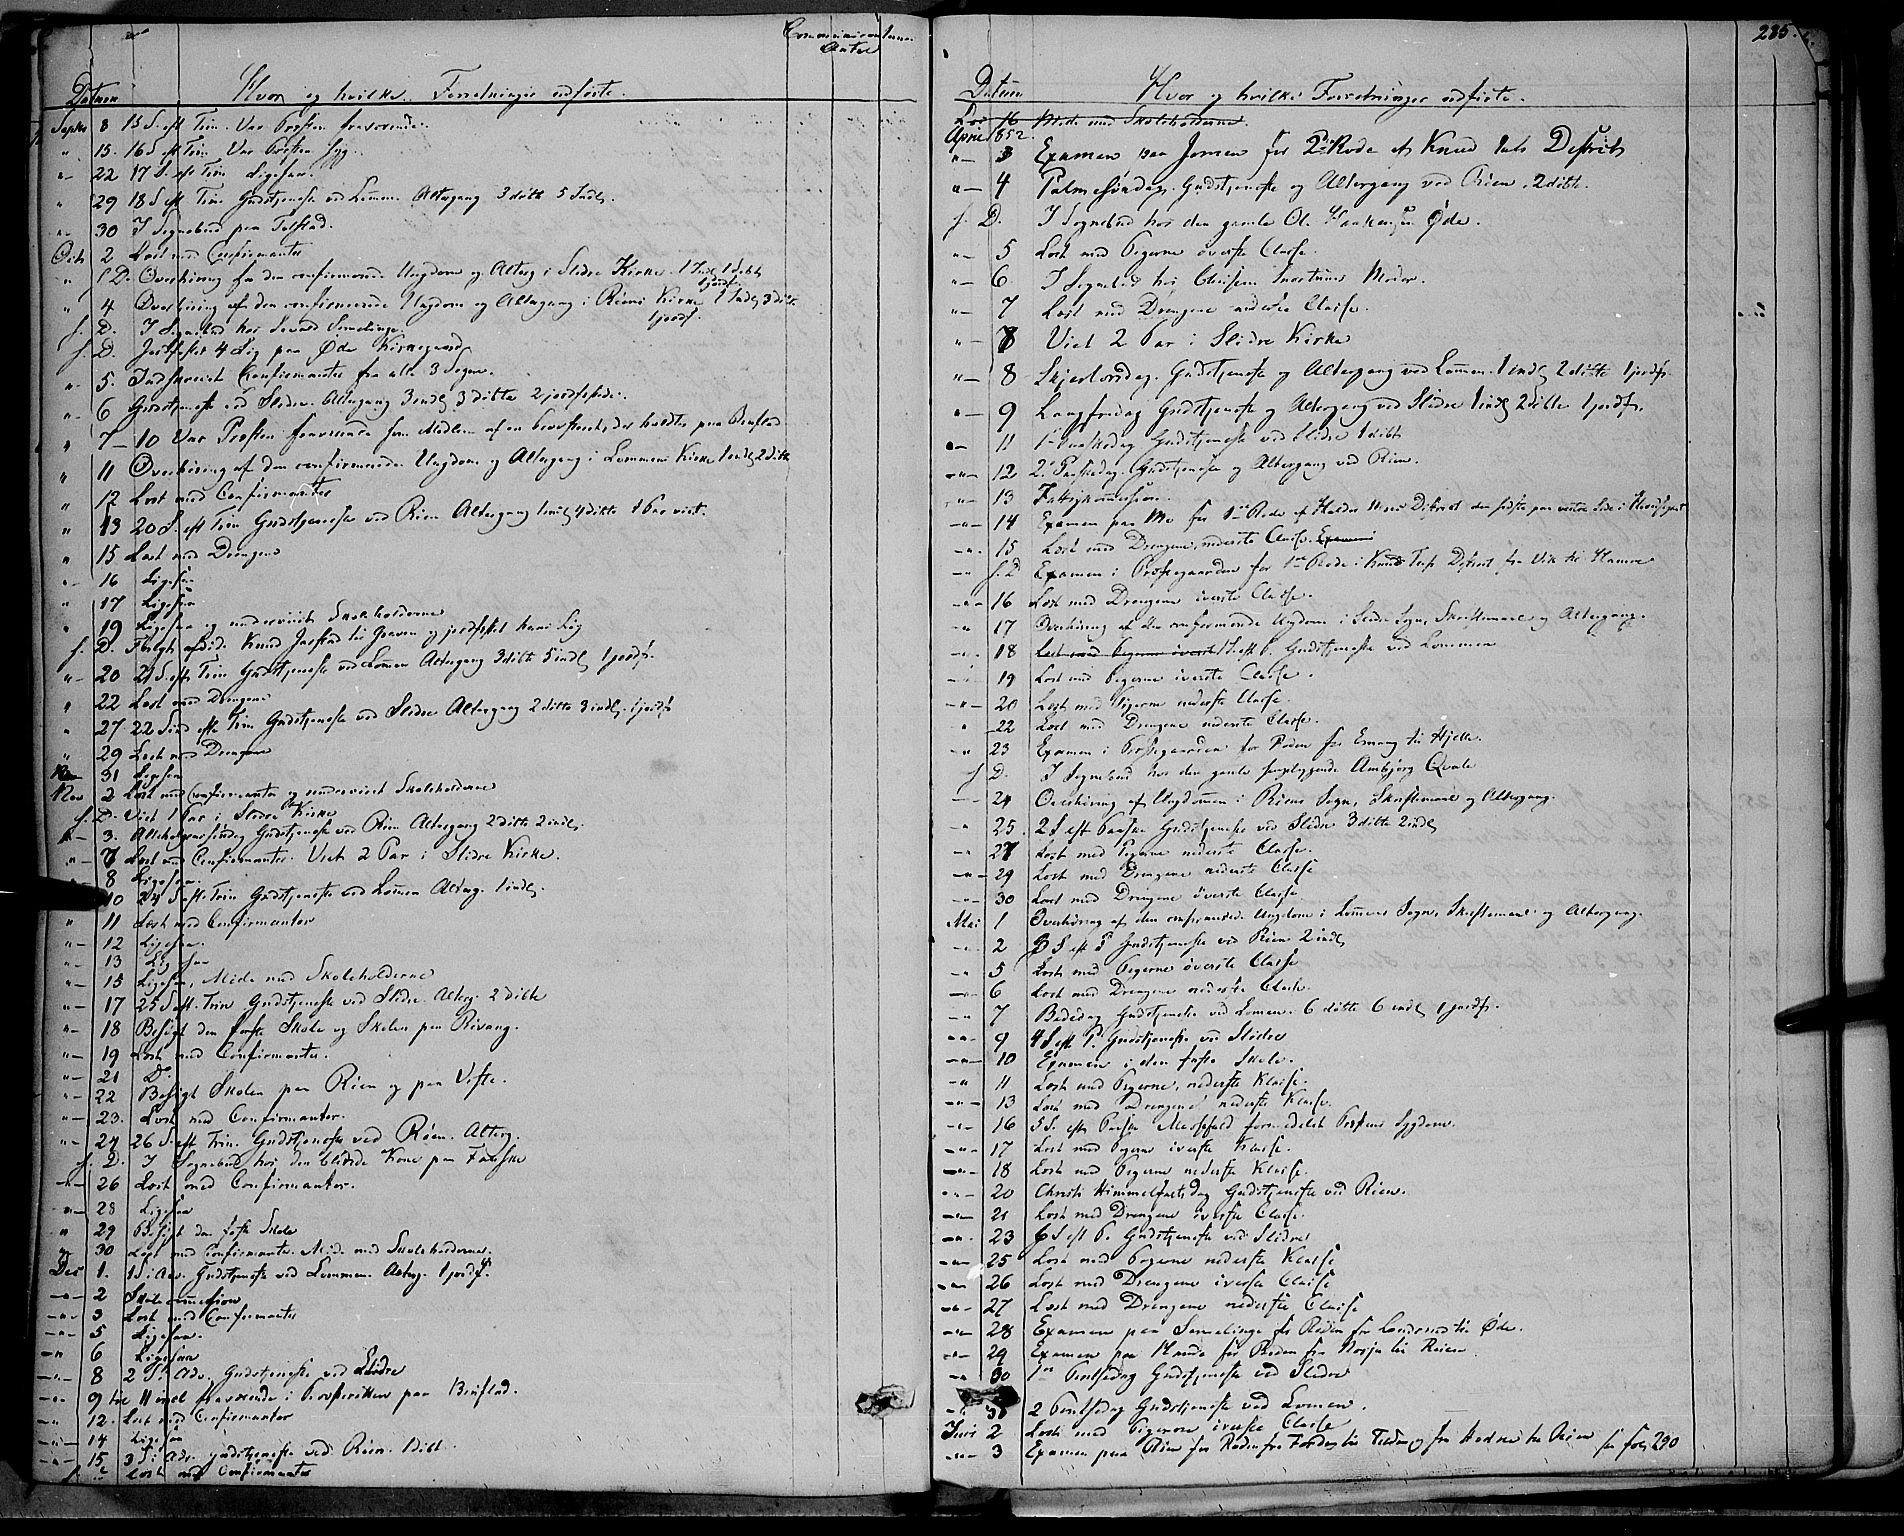 Communicanternes
Antal
Datum Hvor og hvilke Forretninger udførte.
Septbr 8 15 S. eft Trin. Var Provsten fraværende.
" 15. 16 S eft Trin. Var Provsten syg.
" 22 17 S. eft Trin Ligesaa.
" 29 18 S eft Trin Gudstjeneste ved Lomen. Altergang 3 dito 5 Indl.
" 30 I Sognebud paa Tolstad.
Octb 2 Læst med Confirmanter
" s D. Overhøring fra den confirmerede Ungdom og Alterg i Slidre Kirke. 1 Indl 1 dito 1 jordf.
" 4 Overhøring af den confirmerede Ungdom og Altergang i Røens Kirke 1 Indl 3 dito 1 jordf.
s. D. I Sognebud hos Sevard Semelinge.
s. D. Jordfæstet 4 Lig paa Øde Kirkegaard
" 5. Indskrevet Confirmanter fra alle 3 Sogne.
" 6 Gudstjeneste ved Slidre. Altergang 3 indl 3 ditto 2 jordfestede.
" 7-10 Var Provsten fraværende som Medlem af en holdtes paa
" 11 Overhøring af den confirmerede Ungdom og Altergang i Lommens Kirke 1 indl 2 ditto
" 12 Læst med Confirmanter
" 13 20 S. eft Trin Gudstjeneste ved Røen Altergang 1 indl 4 ditto 1 Par viet.
" 15 Læst med Drengene
" 16 Ligesaa
" 17 Ligesaa
" 19 Ligesaa og underviist Skoleholderne
s. D. Fulgt afdøde Knud til Graven og jordfestet hans Lig
" 20 21 S. eft Trin Gudstjeneste ved Lomen Altergang 3 ditto 5 indl 1 jordf.
" 22 Læst med Drengene
" 27 22 Sønd eft Trin Gudstjeneste ved Slidre Altergang 2 ditto 3 indl. 1 jordf
" 29 Læst med Drengene
31 Ligesaa
Nov 2 Læst med Confirmanter og underviist Skoleholderne
s. D. Viet 1 Par i Slidre Kirke
" 3. Allehelgensøndag Gudstjeneste ved Røen Altergang 2 ditto 2 indl.
" 7 Læst med Confirmanter. Viet 2 Par i Slidre Kirke.
8 Ligesaa.
10 24 S eft Trin Gudstjeneste ved Lomen Alterg. 1 indl.
" 11 Læst med Confirmanter
" 12 Ligesaa.
" 13 Ligesaa
" 15 Ligesaa, Møde med Skoleholderne
" 17 25 S eft. Trin Gudstjeneste ved Slidre. Alterg. 2 ditto
" 18 Besøgt den faste Skole og Skolen paa Rivang.
" 19 Læst med Confirmanter.
" 21 Do
" 22 Besøgt Skolen paa Røen og paa Vefte.
" 23. Læst med Confirmanter.
" 24 26 S. eft Trin. Gudstjeneste ved Røen. Alterg.
s. D. I Sognebud hos den blinde Kone paa
" 26 Læst med Confirmanter.
" 28 Ligesaa
" 29 Besøgt den faste Skole
" 30 Læst med Confirmanter. Møde med Skoleholderne.
Dec 1. 1 S. i Adv. Gudstjeneste ved Lommen. Alterg. 1 jordf.
" 2 Skolecommission
" 3 Læst med Confirmanter
" 5 Ligesaa.
" 6 Ligesaa
" 8 2 S i Adv. Gudstjeneste ved Slidre
" 9 paa
" 12. Læst med Confirmanter
" 14 Ligesaa
" 15 3 S i Adv gudstjeneste ved Røen. 1 dito.
Læst med Confirmanter
285.
Datum Hvor og hvilke Forretninger udførte.
16 Møde med Skoleholderne.
April 1852.
" 3 Examen paa Jomen for 2den Rode af Knud Distrikt
" 4 Palmesøndag. Gudstjeneste og Altergang ved Røen. 2 ditto.
s. D. I Sognebud hos den gamle Ole Haakensen Øde.
" 5 Læst med Pigerne øverste Classe.
" 6. I Sognebud hos Moder.
" 7 Læst med Drengene nederste Classe.
" 7 Viet 2 Par i Slidre Kirke
" 8 Skjertorsdag. Gudstjeneste og Altergang ved Lomen. 1 indl 2 ditto 1 jordf.
" 9 Langfredag Gudstjeneste og Altergang ved Slidre 1 indl 2 ditto 1 jordf.
" 11 1ste Paaskedag Gudstjeneste ved Slidre 1 dito
" 12 2den Paaskedag. Gudstjeneste og Altergang ved Røen.
" 13 Fattigkommission.
" 14 Examen paa Mo for 1ste Rode af Distrikt den sidste paa venstre Side i
" 15 Læst med Drengene, nederste Classe. Examen
" s. D Examen i Præstegaarden for 1ste Rode i Knud Distrikt fra Vik til Hamre
" 16 Læst med Drengene øverste Classe.
" 17 Overhøring af den confirmerede Ungdom i Slidre Sogn, Skriftemaal og Altergang.
" 18 Læst med Pigerne øverste 1 S. eft P. Gudstjeneste ved Lommen
" 19 Læst med Pigerne øverste Classe.
" 20 Læst med Pigerne nederste Classe.
" 22 Læst med Drengene nederste Classe.
" 23 Examen i Præstegaarden for Roden fra til Hjelle.
s D. I Sognebud hos den gamle sengeliggende Ambjørg Qvale
" 24 Overhøring af Ungdommen i Røens Sogn, Skriftemaal og Altergang.
" 25. 2 S eft Paaske Gudstjeneste ved Slidre 3 ditto 2 indl
" 27 Læst med Pigerne nederste Classe.
" 29 Læst med Drengene nederste Classe
" 30 Læst med Drengene øverste Classe
Mai 1 Overhøring af den confirmerede Ungdom i Lomens Sogn. Skriftemaal og Altergang.
" 2 3 S eft P Gudstjeneste ved Røen 2 indl
" 5 Læst med Pigerne øverste Classe
" 6 Læst med Drengene nederste Classe.
" 7 Bededag Gudstjeneste ved Lomen. 6 ditto 6 indl 1 jordf.
" 9 4 S eft P. Gudstjeneste ved Slidre
" 10 Examen i den faste Skole.
" 11 Læst med Pigerne, nederste Klasse.
" 13 Læst med Drengene nederste Klasse.
" 16 5 S. eft Paaske Messefald formedelst Provstens Sygdom.
" 17 Læst med Pigerne øverste Klasse.
" 18 Læst med Pigerne nederste Klasse.
" 20 Christi Himmelfartsdag Gudstjeneste ved Røen.
" 21 Læst med Drengene øverste Classe.
" 23 6 S eft P. Gudstjeneste ved Slidre
" 25 Læst med Pigerne nederste Klasse
" 26 Læst med Drengene øverste Classe
" 27 Læst med Drengene nederste Classe
" 28 Examen paa Semelinge for Roden fra til Øde.
" 29 Examen paa for Roden fra til Røien
" 30 1ste Pintsedag Gudstjeneste ved Slidre
" 31 2 Pintsedag Gudstjeneste ved Lomen.
Juni 2 Læst med Pigerne øverste Classe
" 3 Examen paa Røen for Roden fra til og fra til Røien see fol. 290